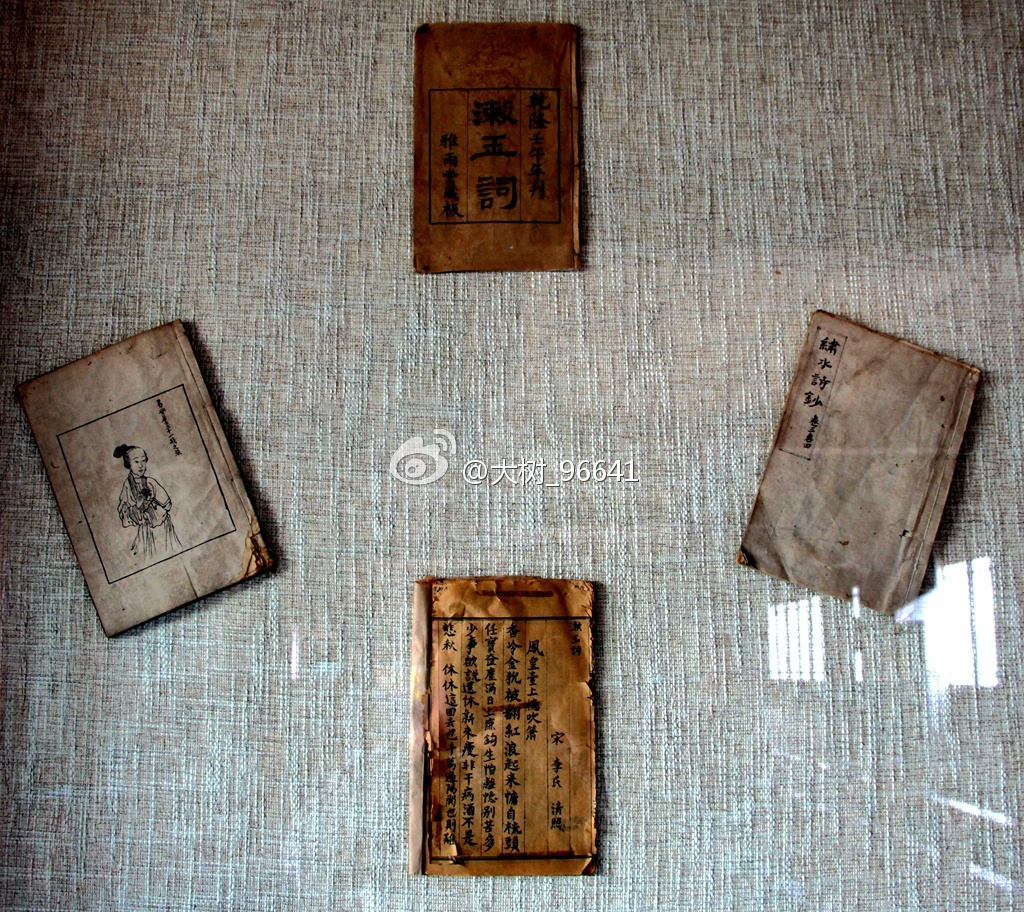 乾隆壬午年刊
漱玉詞
雅雨堂藏板
易安居士三十一歲之
@大树_96641
繡水詩鈔 卷三卷四
漱玉詞
宋 李氏 清照
鳳皇臺上憶吹簫
香冷金猊被翻紅浪起來慵自梳頭
任寶奩塵滿日上簾鉤生怕離別苦多
少事欲說還休新來瘦非干病酒不是
悲秋 休休這回去也千萬遍陽關也則難